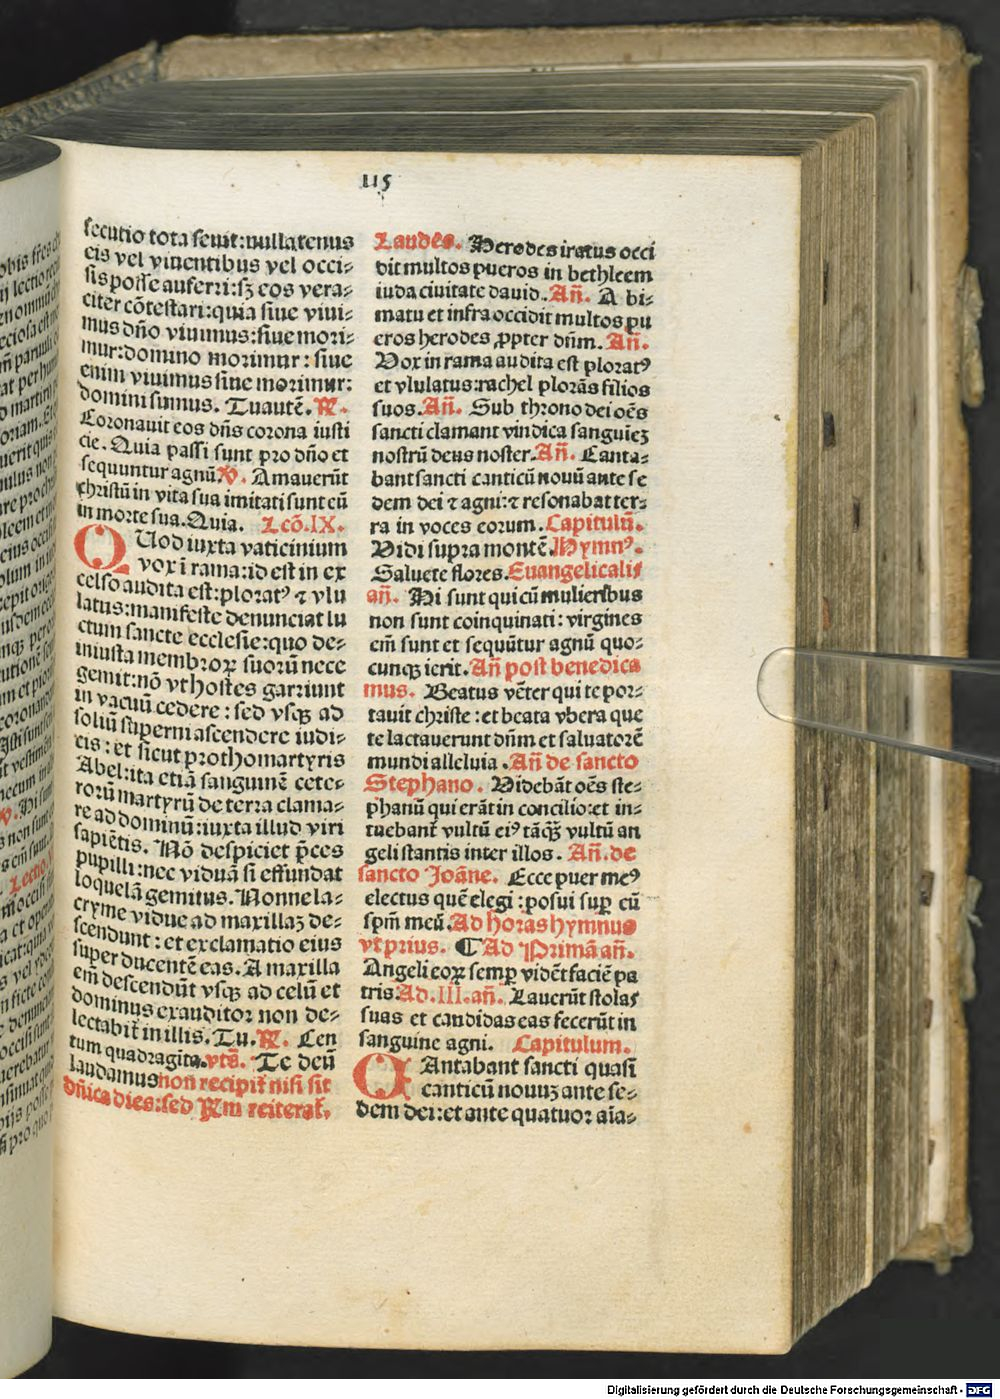 115
secutio tota seuit: nullatenus
eis vel viuentibus vel occi⸗
sis posse auferri: sꝫ eos vera⸗
citer cōtestari: quia siue viui⸗
mus dño viuimus: siue mori⸗
mur: domino morimur: siue
enim viuimus siue morimur:
domini sumus. Tu autē. ℟.
Coronauit eos dñs corona iusti
cie. Quia passi sunt pro dño et
sequuntur agnū ℣. Amauerūt
christū in vita sua imitati sunt eū
in morte sua. Quia. Lcō. IX.
QUod iuxta vaticinium
vox ī rama: id est in ex
celso audita est: ploratꝰ ⁊ vlu
latus: manifeste denunciat lu
ctum sancte ecclesie: quo de⸗
iniusta membroꝝ suorū nece
gemit: nō vt hostes garriunt
in vacuū cedere: sed vsqꝫ ad
soliū superni ascendere iudi⸗
cis: et sicut prothomartyris
Abel: ita etiā sanguinē cete⸗
rorū martyrū de terra clama⸗
re ad dominū: iuxta illud viri
sapiētis. Nō despiciet p̄ces
pupilli: nec viduā si effundat
loquelā gemitus. Nonne la⸗
cryme vidue ad maxillaꝫ de⸗
scendunt: et exclamatio eius
super ducentē eas. A maxilla
em̄ descendūt vsqꝫ ad celū et
dominus exauditor non de⸗
lectabit̄ in illis. Tu. ℟. Cen
tum quadragīta. vts̄. Te deū
laudamus non recipit̄ nisi sit
dñica dies: sed ℟m reiterat̄.
Laudes. Herodes iratus occi
dit multos pueros in bethleem
iuda ciuitate dauid. Añ. A bi⸗
matu et infra occidit multos pu
eros herodes ꝓpter dñm. Añ.
Vox in rama audita est ploratꝰ
et vlulatus: rachel plorās filios
suos. Añ. Sub throno dei oēs
sancti clamant vindica sanguiēꝫ
nostrū deus noster. Añ. Canta⸗
bant sancti canticū nouū ante se
dem dei ⁊ agni: ⁊ resonabat ter⸗
ra in voces eorum. Capitulū.
Vidi supra montē. Hymnꝰ.
Saluete flores. Euangelicalis
añ. Hi sunt qui cū mulieribus
non sunt coinquinati: virgines
em̄ sunt et sequūtur agnū quo⸗
cunqꝫ ierit. Añ post benedica
mus. Beatus vēter qui te por⸗
tauit christe: et beata vbera que
te lactauerunt dñm et saluatorē
mundi alleluia. Añ de sancto
Stephano. Videbāt oēs ste⸗
phanū qui erāt in concilio: et in⸗
tuebant̄ vultū eiꝰ tāqꝫ vultū an
geli stantis inter illos. Añ. de
sancto Joāne. Ecce puer meꝰ
electus quē elegi: posui suꝑ eū
spm̄ meū. Ad horas hymnus
vt prius. ¶ Ad Primā añ.
Angeli eoꝝ semꝑ vidēt faciē pa
tris. Ad. III. añ. Lauerūt stolas
suas et candidas eas fecerūt in
sanguine agni. Capitulum.
CAntabant sancti quasi
canticū nouuꝫ ante se⸗
dem dei: et ante quatuor aīa⸗
Digitalisierung gefördert durch die Deutsche Forschungsgemeinschaft - DFG